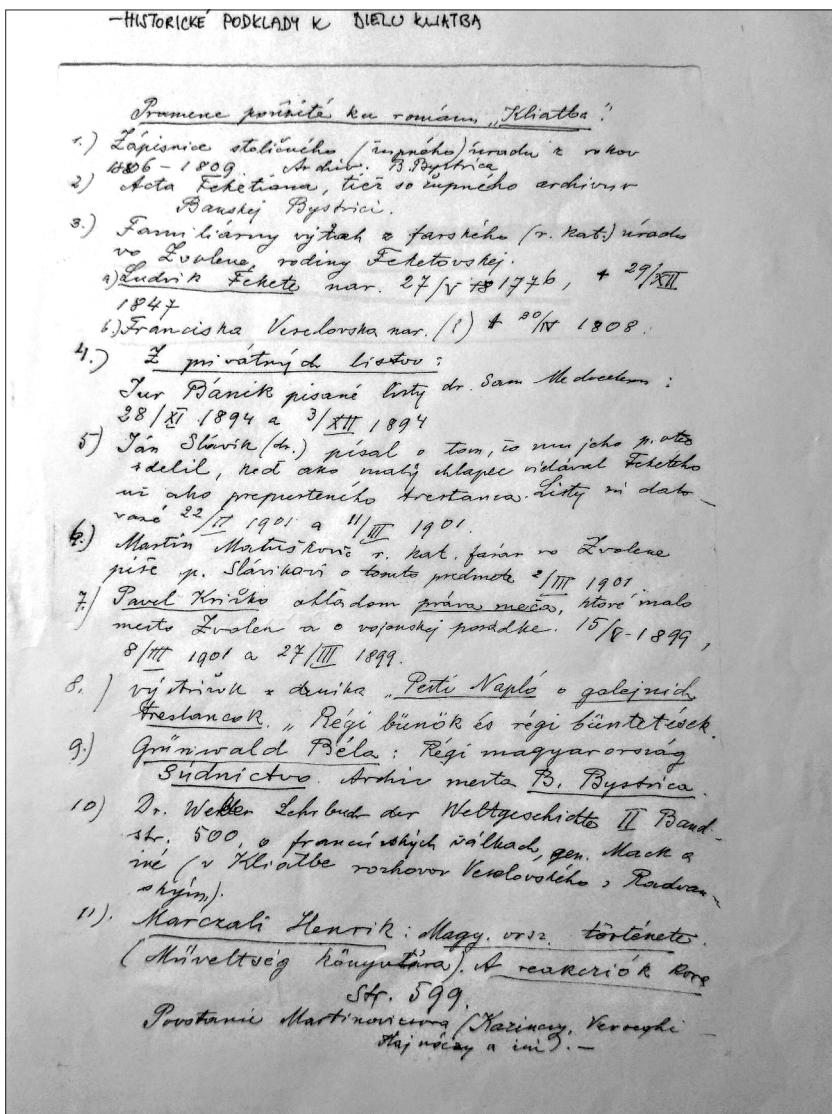 -HISTORICKÉ PODKLADY K DIELU KLIATBA
Pramene použité ku románu „Kliatba".
1.) Zápisnice stoličného (župného) úradu z rokov
1806-1809. Archív. B. Bystrica
2) Acta Feketiana, tiež so župného archivu v
Banskej Bystrici.
3.) Familiarny výťah z farského (r. kat.) úradu
vo Zvolene, rodiny Feketovskej.
a) Ludvik Fekete nar. 27/V 1776, + 29/XII
1847
b.) Franciska Veselovska nar. (?) + 30/IV 1808.
4.) Z privátných listov:
Jur Bánik písané listy dr. Sam Medveckem:
28/XI 1894 a 3/XII 1894
5) Ján Slávik (dr.) písal o tom, čo mu jeho p. otec
sdelil, keď ako malý chlapec vídával Feketeho
už ako prepusteného trestanca. Listy sú dato-
vané 22/II 1901 a 11/III 1901.
6.) Martin Matuškovič r. kat. farár vo Zvolene
píše p. Slávikovi o tomto predmete 2/III 1901.
7.) Pavel Križko ohľadom práva meča, ktoré malo
mesto Zvolen a o vojenskej posádke. 15/V-1899,
8/III 1901 a 27/III 1899.
8.) výstrižok z denníka „Pesti Napló o galejních
trestancoch. „Régi bünök és régi büntetések.
9.) Grünwald Béla: Régi magyarország
Súdnictvo. Archiv mesta B. Bystrica.
10) Dr. Weber Lehrbuch der Weltgeschichte II Band
str. 500, o francúzských válkach, gen. Mack a
iné (v Kliatbe rozhovor Veselovského s Radvan-
ským).
11). Marczali Henrik: Magy. orsz. története.
(Műveltség könyvtára). A reakciók kora
Str. 599.
Povstanie Martinovicsova (Kazinczy, Verseghi -
Hajnóczy a iní). -